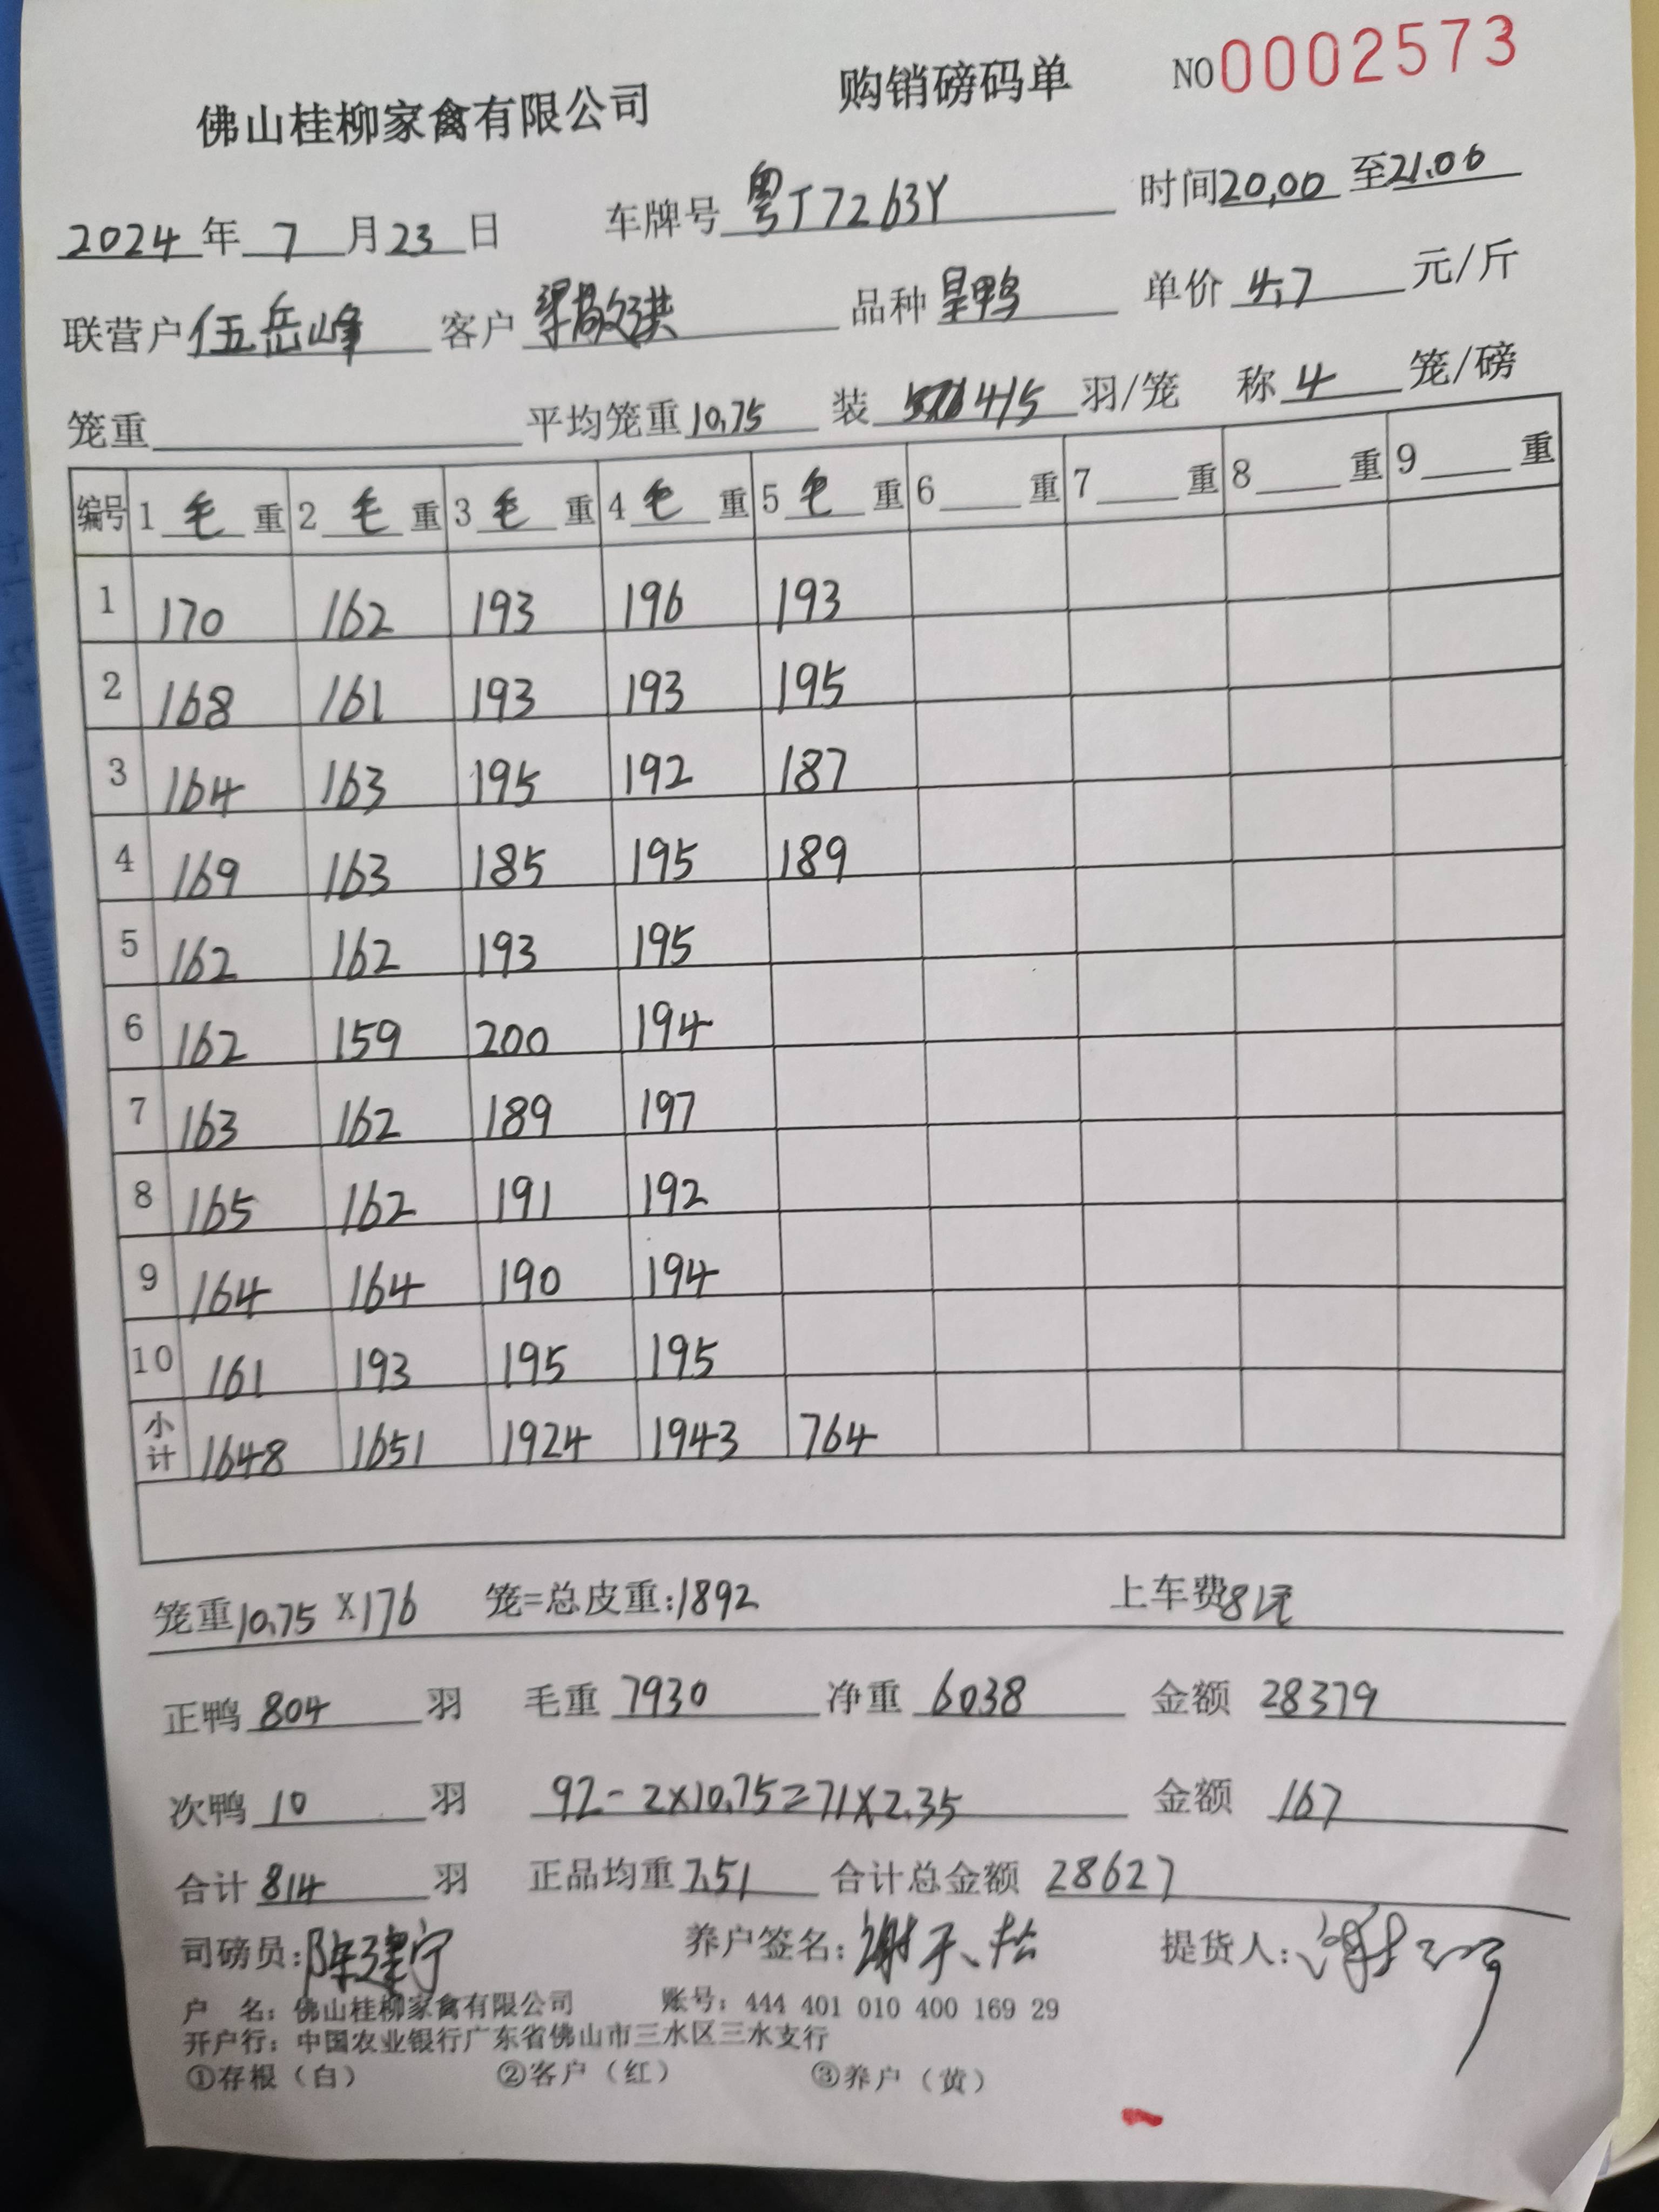 佛山桂柳家禽有限公司 购销磅码单 NO 0002573
2024 年 7 月 23 日 车牌号 粤J7263Y 时间 20,00 至 21.00
联营户 伍岳峰 客户 梁敬洪 品种 呈鸭 单价 4.7 元/斤
笼重 平均笼重 10.75 装 4/5 羽/笼 称 4 笼/磅
编号 1 毛 重 2 毛 重 3 毛 重 4 毛 重 5 毛 重 6 重 7 重 8 重 9 重
1 170 162 193 196 193
2 168 161 193 193 195
3 164 163 195 192 187
4 169 163 185 195 189
5 162 162 193 195
6 162 159 200 194
7 163 162 189 197
8 165 162 191 192
9 164 164 190 194
10 161 193 195 195
小计 1648 1651 1924 1943 764
笼重 10.75 X 176 笼=总皮重: 1892 上车费 81元
正鸭 804 羽 毛重 7930 净重 6038 金额 28379
次鸭 10 羽 92-2×10.75=71×2.35 金额 167
合计 814 羽 正品均重 7.51 合计总金额 28627
司磅员: 陈建宁 养户签名: 提货人:
户 名: 佛山桂柳家禽有限公司 账号: 444 401 010 400 169 29
开户行: 中国农业银行广东省佛山市三水区三水支行
①存根（白） ②客户（红） ③养户（黄）